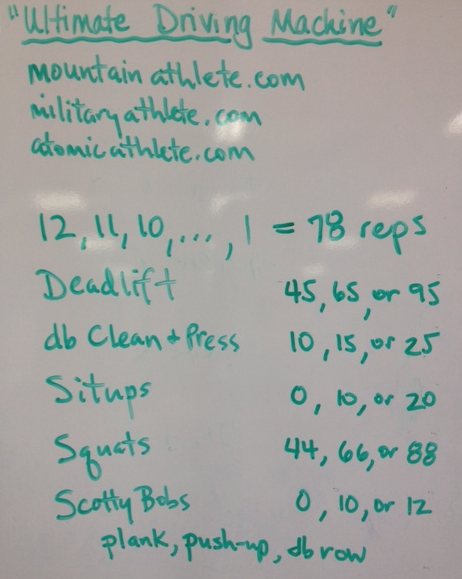 "Ultimate Driving Machine"
mountainathlete.com
militaryathlete.com
atomicathlete.com
12, 11, 10, ..., 1 = 78 reps
Deadlift 45, 65, or 95
db Clean + Press 10, 15, or 25
Situps 0, 10, or 20
Squats 44, 66, or 88
Scotty Bobs 0, 10, or 12
plank, push-up, db row